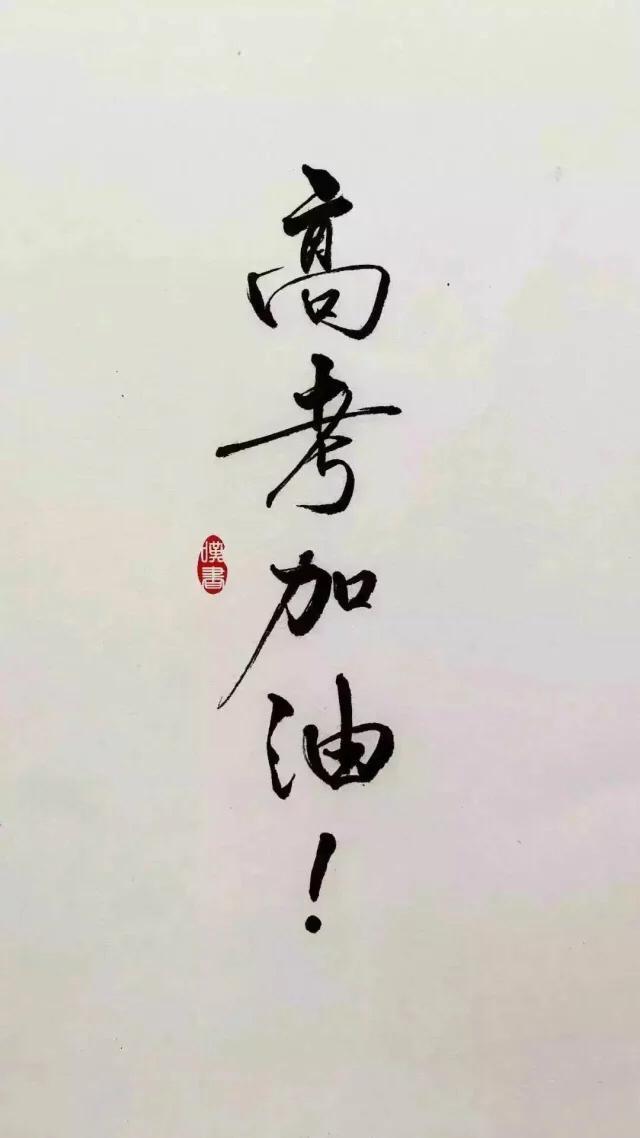 高考加油！
書